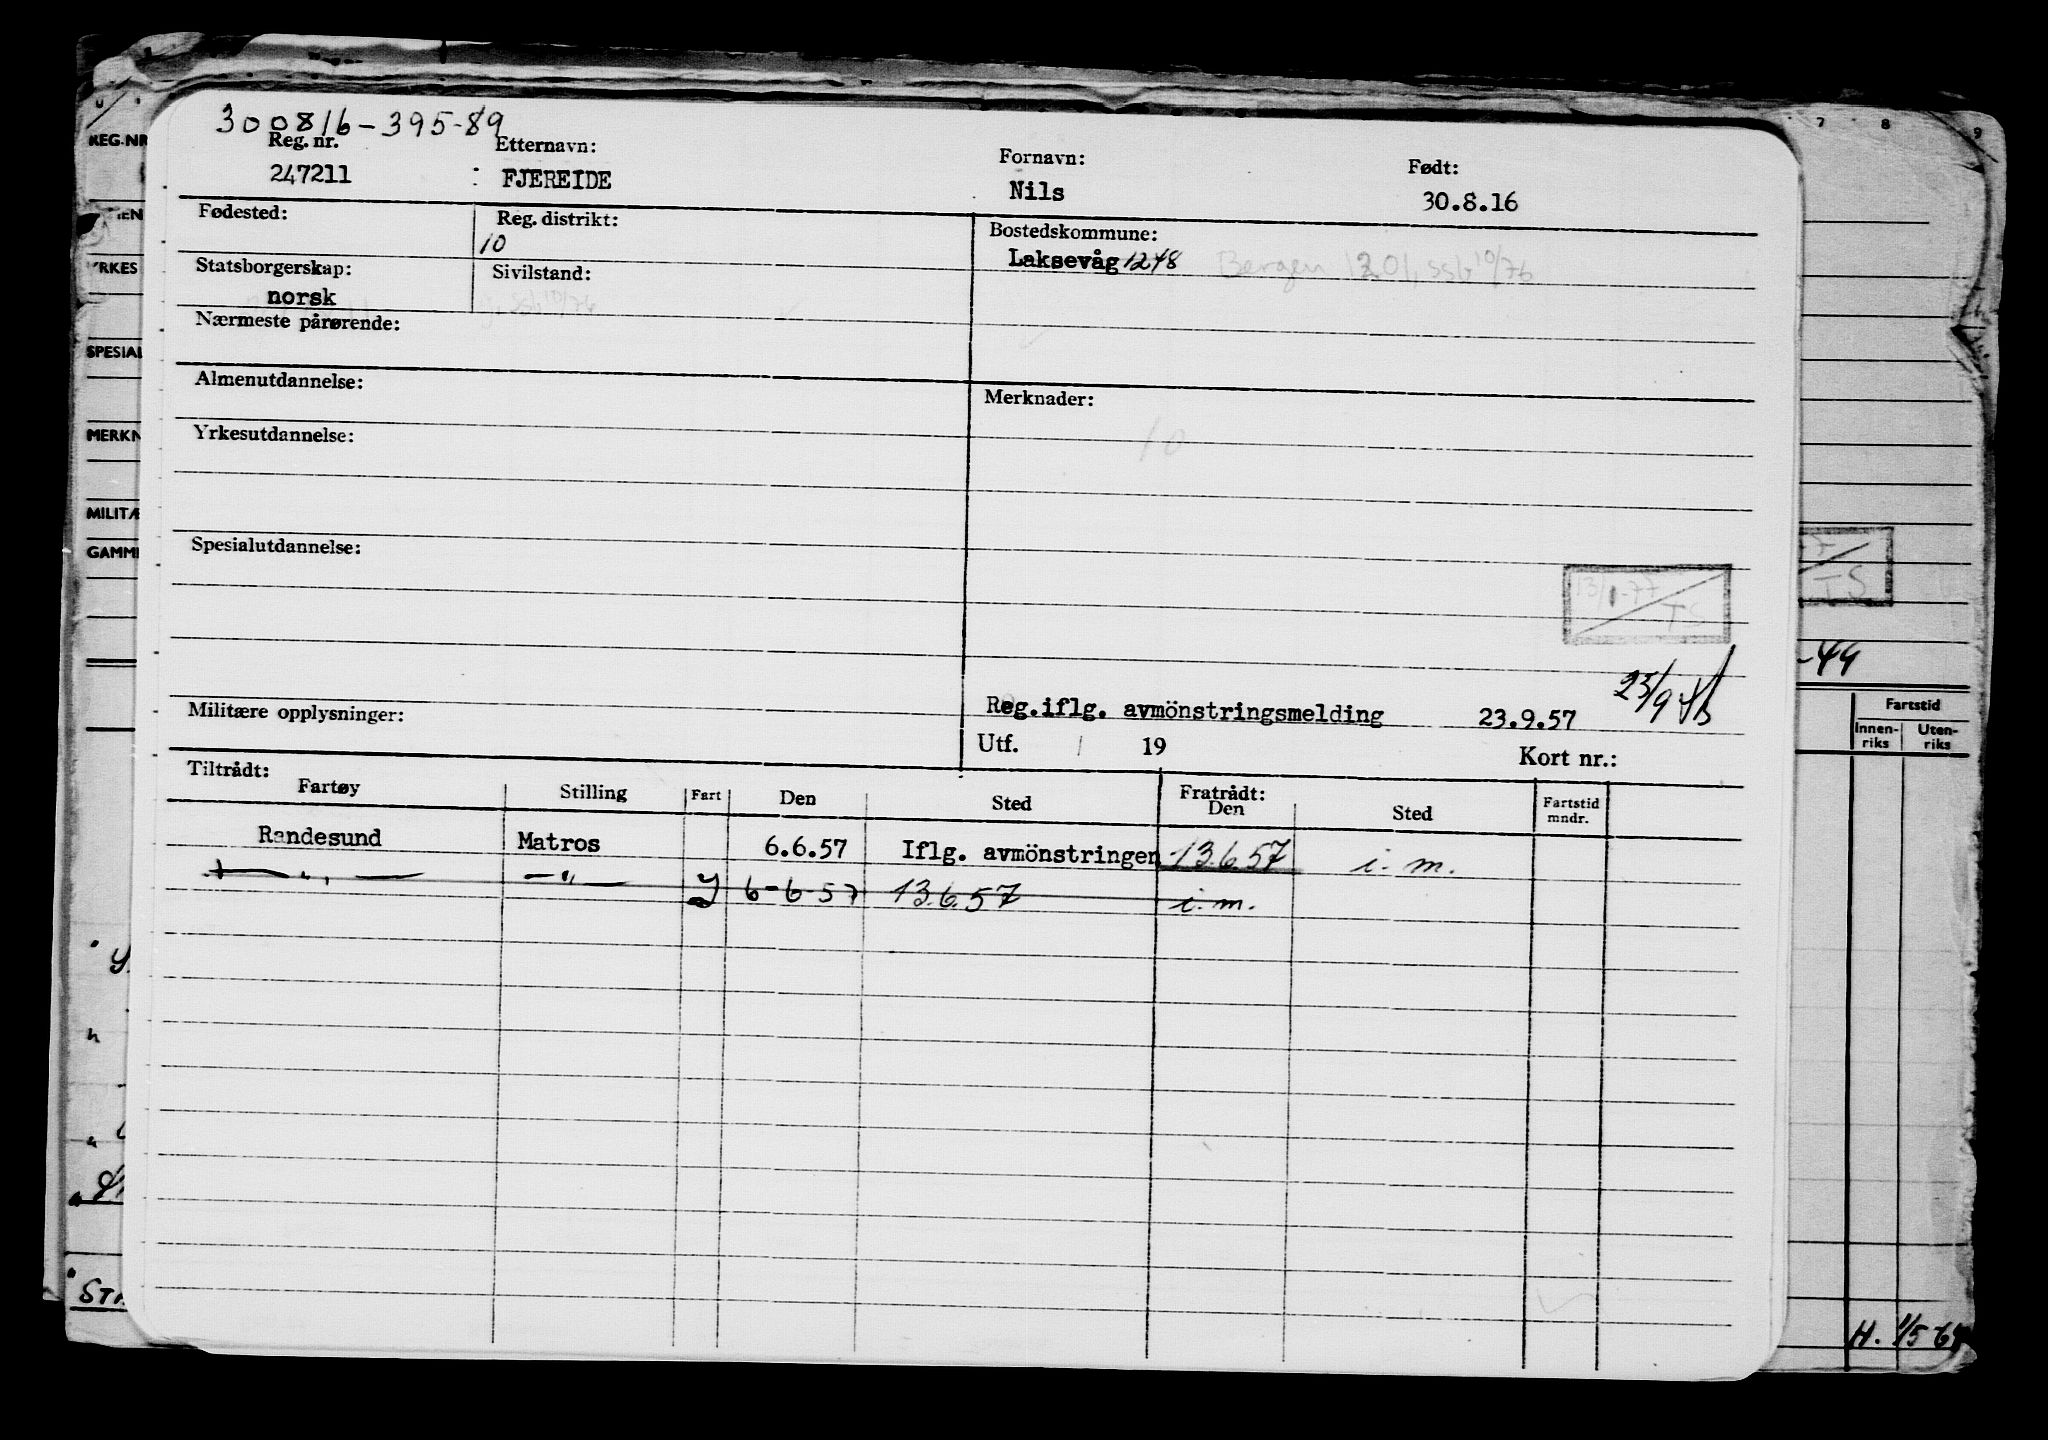 300816-395-89
Reg. nr. Etternavn: Fornavn: Født:
247211 : FJEREIDE Nils 30.8.16
Fødested: Reg. distrikt: Bostedskommune:
10 Laksevåg 1248 Bergen 1201, ssb 10/76
Statsborgerskap: Sivilstand:
norsk ssb 10/76
Nærmeste pårørende:
Almenutdannelse: Merknader:
10
Yrkesutdannelse:
Spesialutdannelse:
13/1-77
TS
Militære opplysninger: Reg.iflg. avmönstringsmelding 23.9.57 25/9
Utf. / 19 Kort nr.:
Tiltrådt: Fratrådt:
Fartøy Stilling Fart Den Sted Den Sted Fartstid mndr.
Randesund Matros 6.6.57 Iflg. avmönstringen 13.6.57 i. m.
— " — — " — y 6-6-57 13.6.57 i. m.
REG.NR
YRKES
SPESIAL
MERKN
MILITÆ
GAMM
7 8 9
TS
-49
Fartstid
Innen-riks Uten-riks
H. 1/5